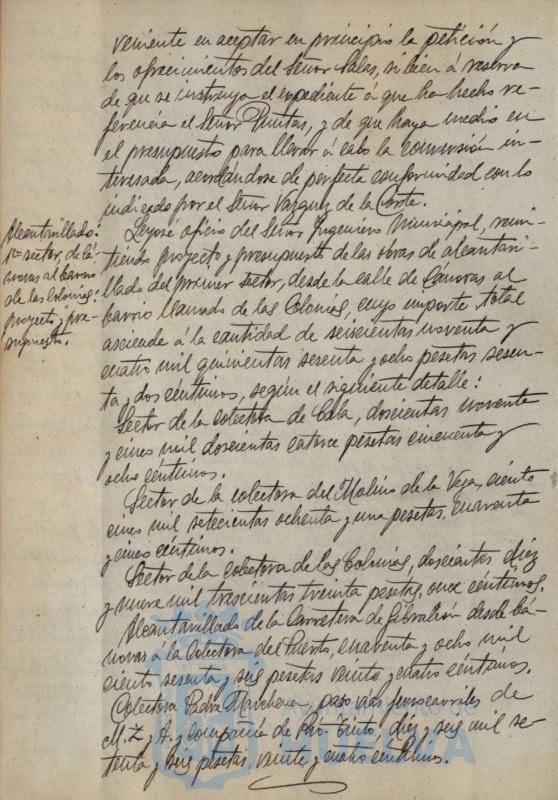 veniente en aceptar en principio la petición y
los ofrecimientos del Señor Salas, si bien á reserva
de que se instruya el expediente á que ha hecho re-
ferencia el Señor Puntas, y de que haya medio en
el presupuesto para llevar á cabo la conversión in-
teresada, acordándose de perfecta conformidad con lo
indicado por el Señor Vazquez de la Corte.
Alcantarillado:
1er sector, de Cá-
novas al barrio
de las Colonias:
proyecto y pre-
supuesto.
Leyose oficio del Señor Ingeniero Municipal, remi-
tiendo proyecto y presupuesto de las obras de alcantari-
llado del primer sector, desde la calle de Cánovas al
barrio llamado de las Colonias, cuyo importe total
asciende á la cantidad de seiscientas noventa y
cuatro mil quinientas sesenta y ocho pesetas sesen-
ta y dos céntimos, según el siguiente detalle:
Sector de la colectora de Cala, doscientas noventa
y cinco mil doscientas catorce pesetas cincuenta y
ocho céntimos.
Sector de la colectora del Molino de la Vega, ciento
cinco mil setecientas ochenta y una pesetas, cuarenta
y cinco céntimos.
Sector de la colectora de las Colonias, doscientas diez
y nueve mil trescientas treinta pesetas, once céntimos.
Alcantarillado de la Carretera de Gibraleón desde Cá-
novas á la Colectora del Puerto, cuarenta y ocho mil
ciento sesenta y seis pesetas veinte y cuatro céntimos.
Colectora Padre Marchena, paso vías ferrocarriles de
M. Z. y A. y compañía de Rio-Tinto, diez y seis mil se-
tenta y seis pesetas, veinte y cuatro céntimos.
HUELVA